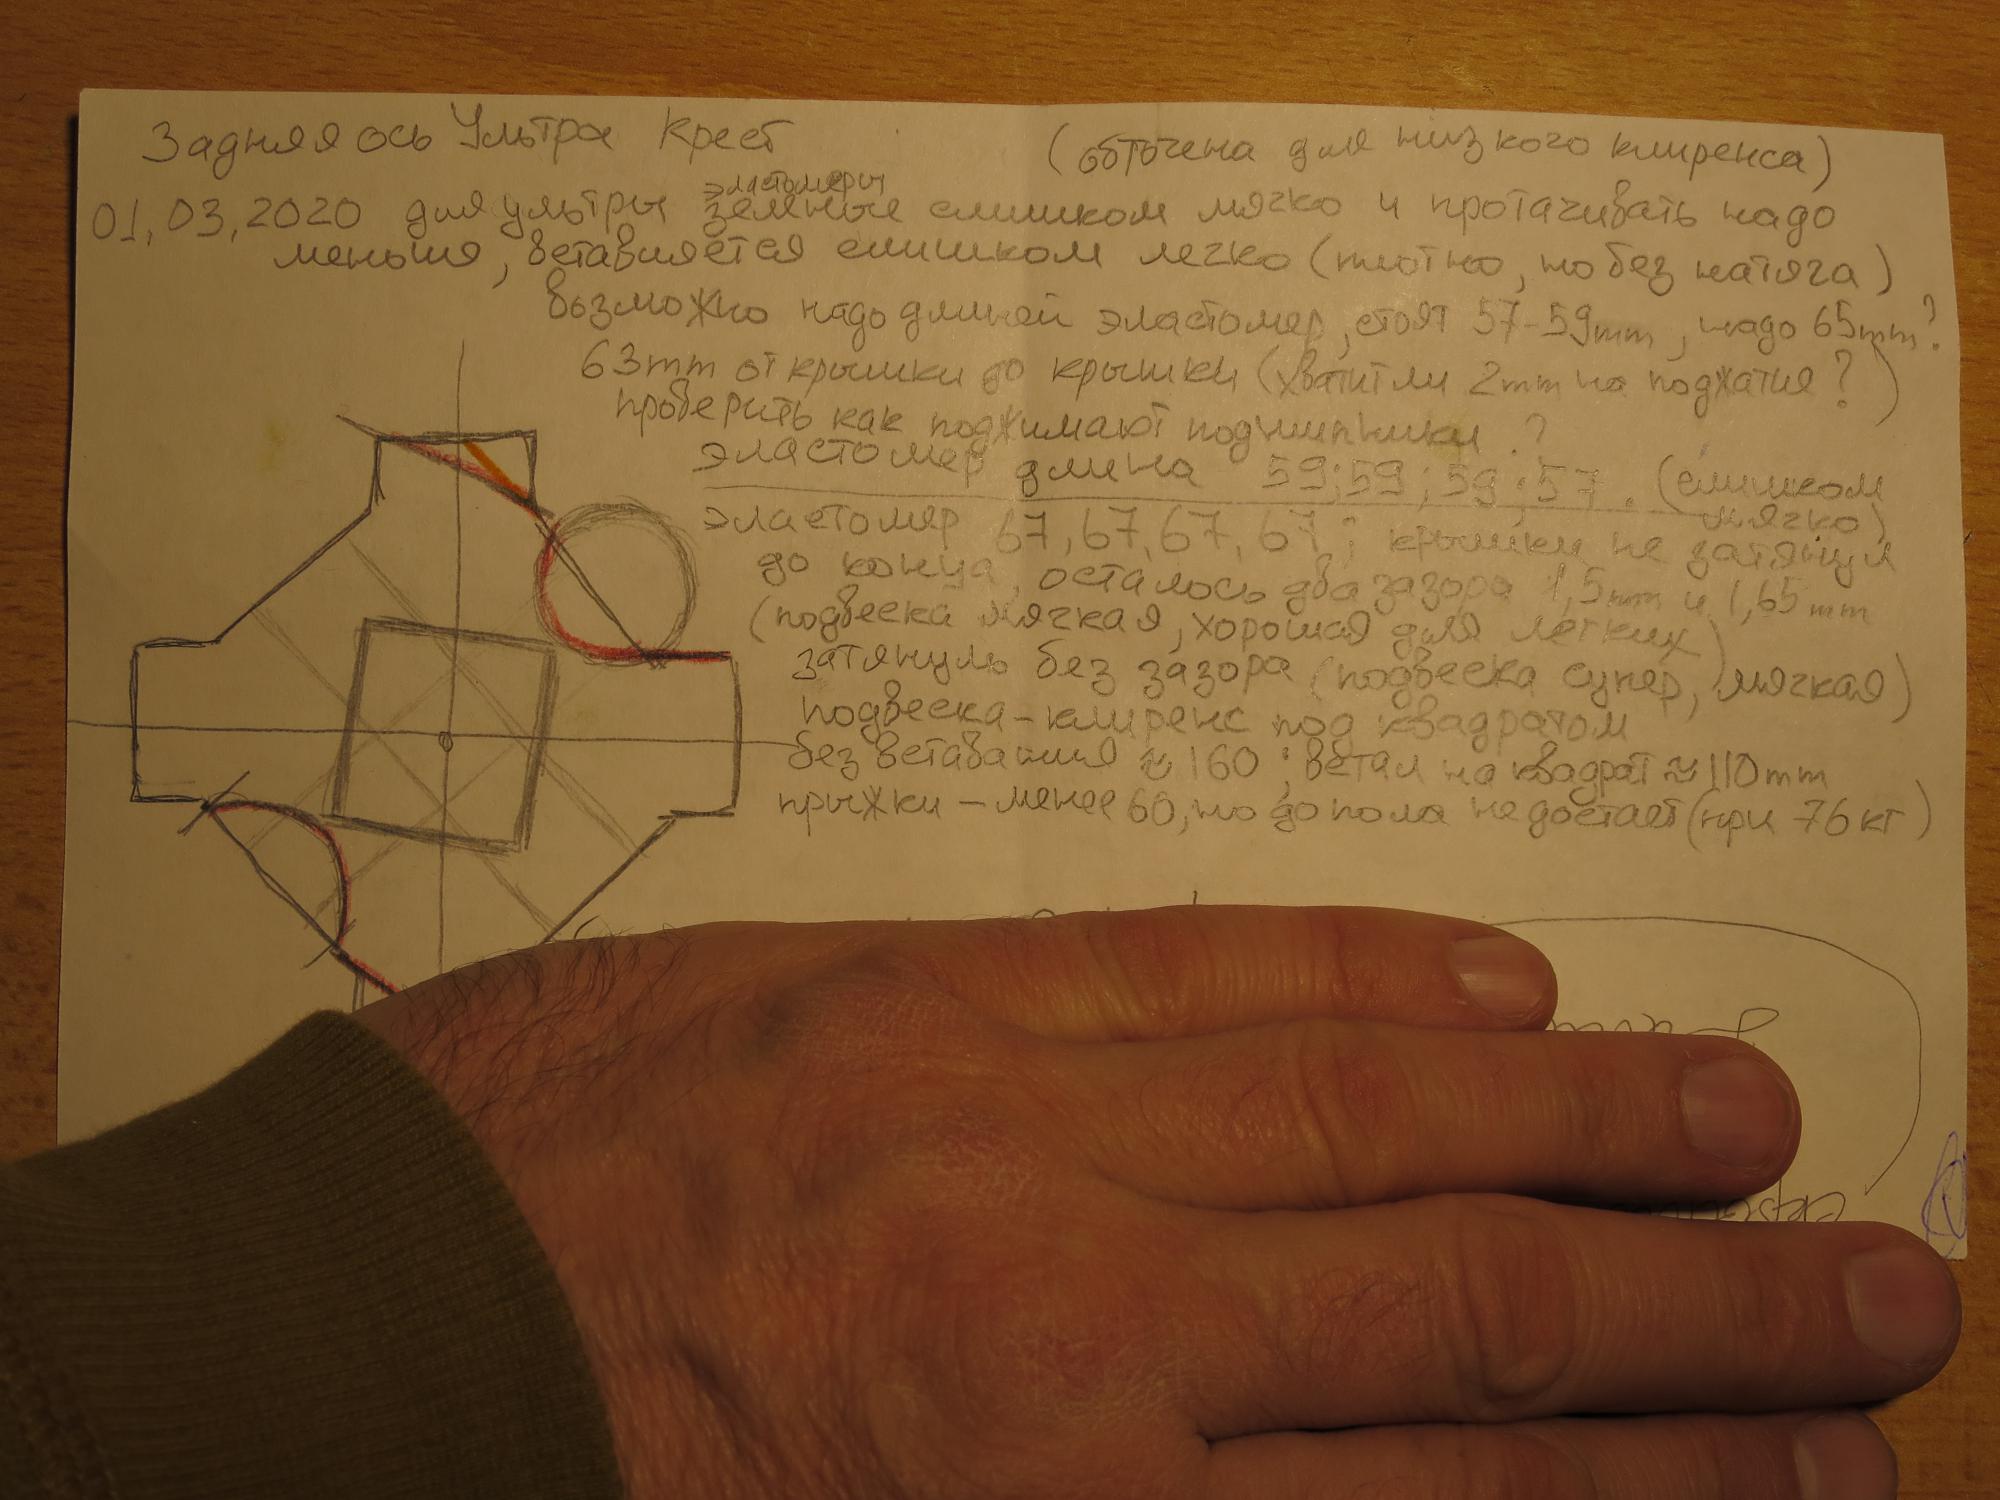 Задняя ось Ультра Крест (обточена для низкого клиренса)
эластомеры
01,03,2020 для ультры зеленые слишком мягко и протачивать надо
меньше, вставляется слишком легко (плотно, но без натяга)
возможно надо длиней эластомер, стоят 57-59mm, надо 65mm?
63mm от крышки до крышки (хватит ли 2mm на поджатие?)
проверить как поджимают подшипники?
эластомер длина 59;59;59;57. (слишком
мягко)
эластомер 67,67,67,67; крышки не затянул
до конца, осталось два зазора 1,5mm и 1,65mm
(подвеска мягкая, хорошая для легких)
затянуль без зазора (подвеска супер, мягкая)
подвеска-клиренс под квадратом
без вставания ≈160; встал на квадрат ≈110mm
прыжки - менее 60, но до пола не достает (при 76 кг)